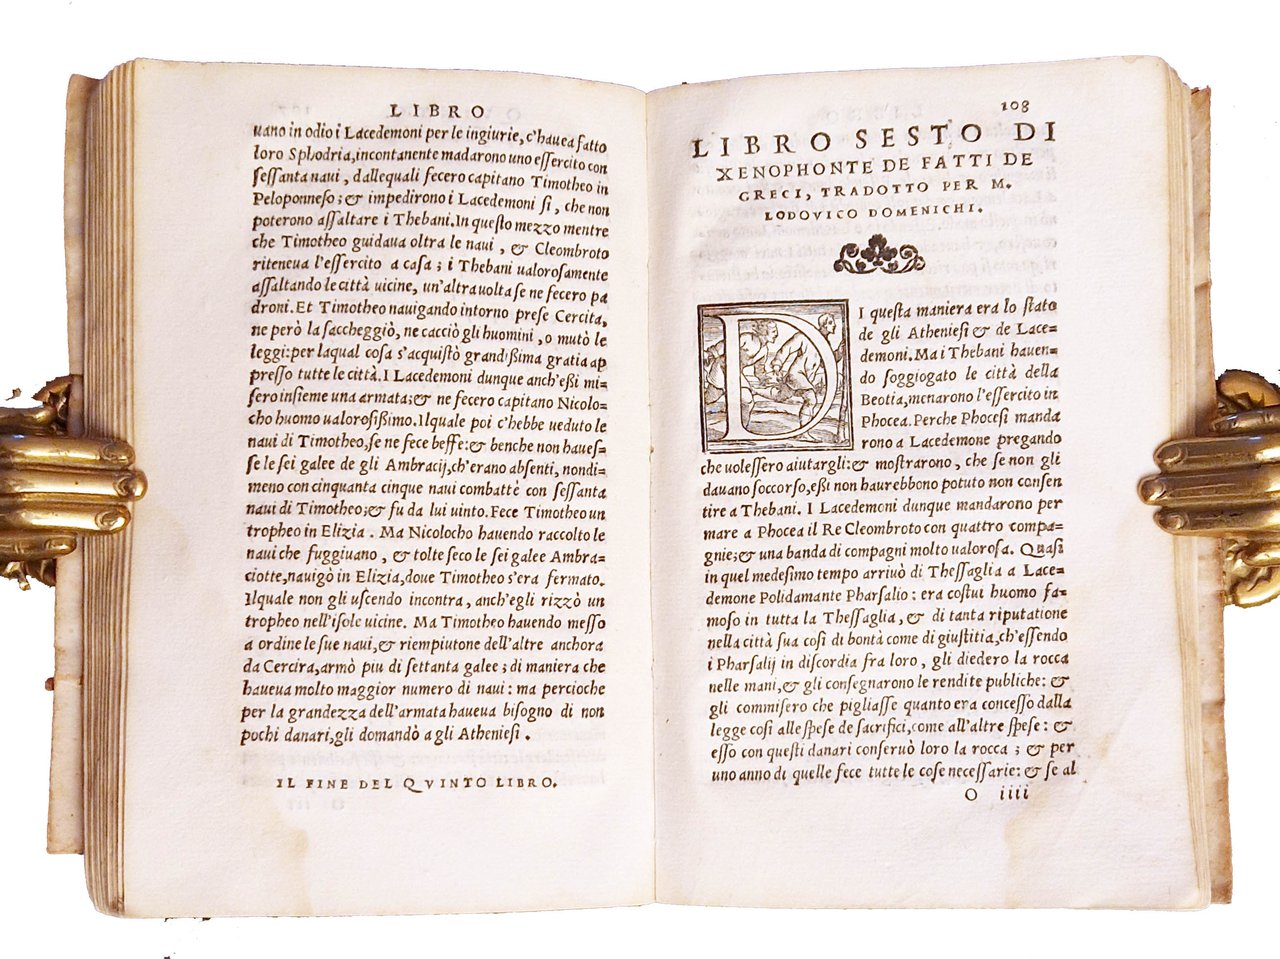 LIBRO
uano in odio i Lacedemoni per le ingiurie, c'hauea fatto
loro Sphodria, incontanente madarono uno essercito con
sessanta naui, dallequali fecero capitano Timotheo in
Peloponneso; & impedirono i Lacedemoni si, che non
poterono assaltare i Thebani. In questo mezzo mentre
che Timotheo guidaua oltra le naui, & Cleombroto
riteneua l'essercito a casa; i Thebani ualorosamente
assaltando le città uicine, un'altra uolta se ne fecero pa
droni. Et Timotheo nauigando intorno prese Cercita,
ne però la saccheggiò, ne cacciò gli huomini, o mutò le
leggi: per laqual cosa s'acquistò grandissima gratia ap
presso tutte le città. I Lacedemoni dunque anch'essi mi-
sero insieme una armata; & ne fecero capitano Nicolo-
cho huomo ualorosissimo. Ilquale poi c'hebbe ueduto le
naui di Timotheo, se ne fece beffe: & benche non haues-
se le sei galee de gli Ambracij, ch'erano absenti, nondi=
meno con cinquanta cinque naui combattè con sessanta
naui di Timotheo; & fu da lui uinto. Fece Timotheo un
tropheo in Elizia. Ma Nicolocho hauendo raccolto le
naui che fuggiuano, & tolte seco le sei galee Ambra=
ciotte, nauigò in Elizia, doue Timotheo s'era fermato.
Ilquale non gli uscendo incontra, anch'egli rizzò un
tropheo nell'isole uicine. Ma Timotheo hauendo messo
a ordine le sue naui, & riempiutone dell'altre anchora
da Cercira, armò piu di settanta galee; di maniera che
haueua molto maggior numero di naui: ma percioche
per la grandezza dell'armata haueua bisogno di non
pochi danari, gli domandò a gli Atheniesi.
IL FINE DEL QVINTO LIBRO.
108
LIBRO SESTO DI
XENOPHONTE DE FATTI DE
GRECI, TRADOTTO PER M.
LODOVICO DOMENICHI.
DI questa maniera era lo stato
de gli Atheniesi & de Lace=
demoni. Ma i Thebani hauen=
do soggiogato le città della
Beotia, menarono l'essercito in
Phocea. Perche Phocesi manda
rono a Lacedemone pregando
che uolessero aiutargli: & mostrarono, che se non gli
dauano soccorso, essi non haurebbono potuto non consen
tire a Thebani. I Lacedemoni dunque mandarono per
mare a Phocea il Re Cleombroto con quattro compa=
gnie; & una banda di compagni molto ualorosa. Quasi
in quel medesimo tempo arriuò di Thessaglia a Lace=
demone Polidamante Pharsalio: era costui huomo fa=
moso in tutta la Thessaglia, & di tanta riputatione
nella città sua così di bontà come di giustitia, ch'essendo
i Pharsalij in discordia fra loro, gli diedero la rocca
nelle mani, & gli consegnarono le rendite publiche: &
gli commisero che pigliasse quanto era concesso dalla
legge così alle spese de sacrifici, come all'altre spese: &
esso con questi danari conseruò loro la rocca; & per
uno anno di quelle fece tutte le cose necessarie: & se al
O iiii